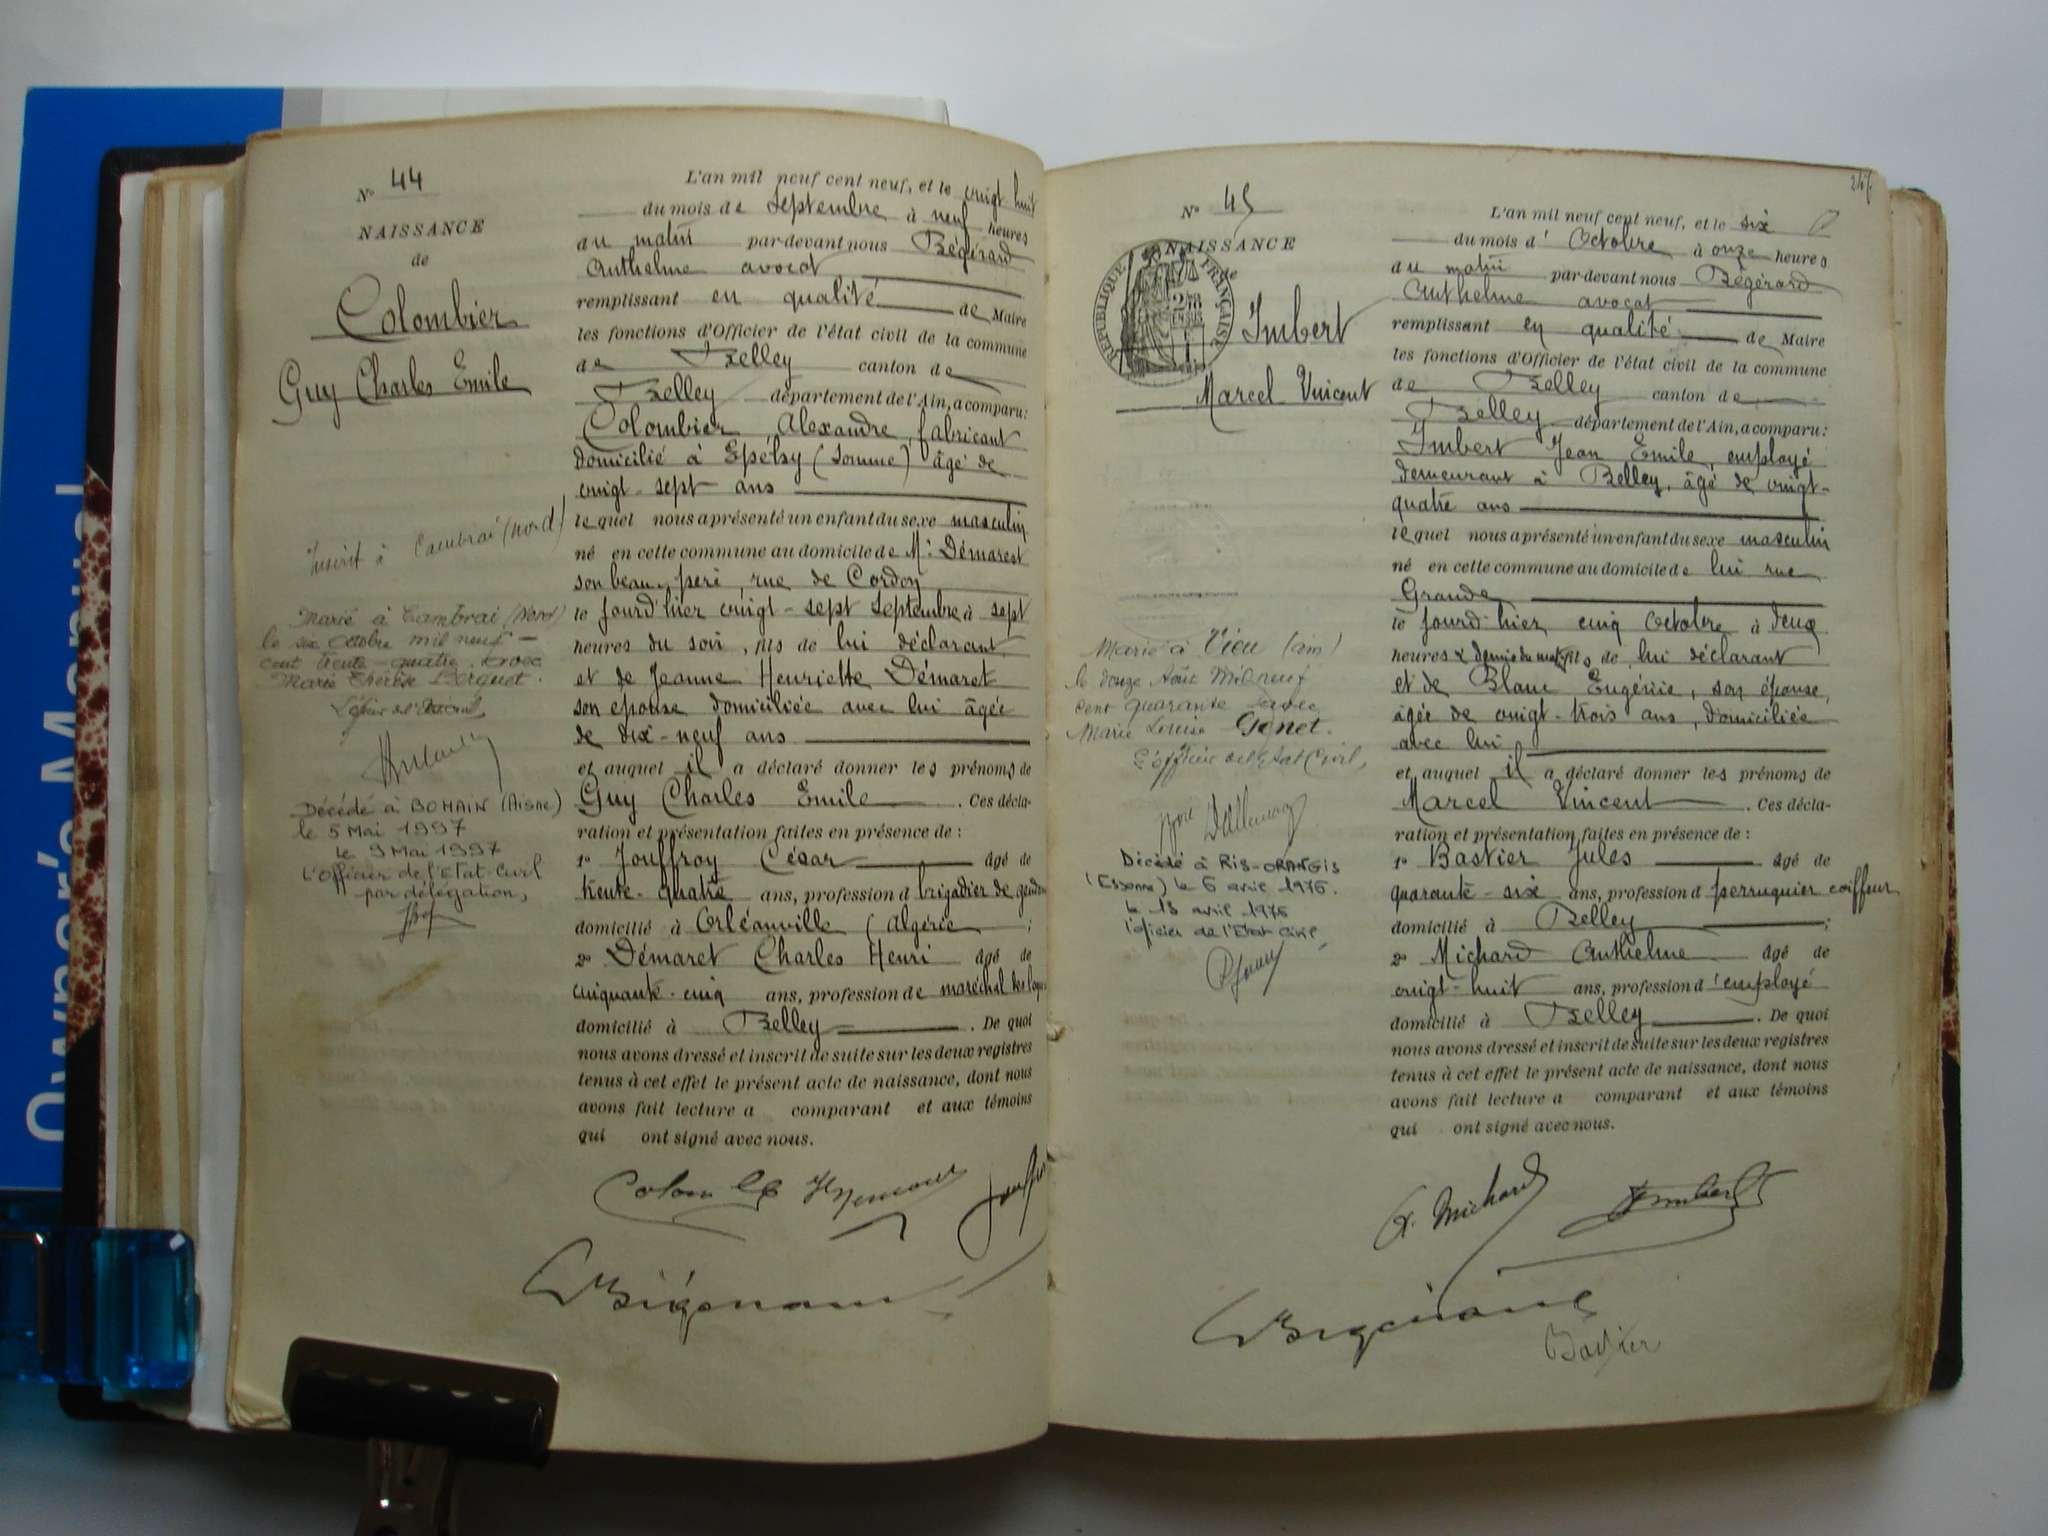 Owner's Manual
N° 44
NAISSANCE
de
Colombier
Guy Charles Emile
Inscrit à Cambrai (Nord)
Marié à Cambrai (Nord)
le six octobre mil neuf
cent trente-quatre avec
Marie Thérèse
Décédé à BOHAIN (Aisne)
le 5 Mai 1997
le 9 Mai 1997
L'Officier de l'Etat-Civil
par délégation,
L'an mil neuf cent neuf, et le vingt huit
du mois de Septembre à neuf heures
du matin par-devant nous Bégérard
Anthelme avocat
remplissant en qualité de Maire
les fonctions d'Officier de l'état civil de la commune
de Belley canton de
Belley département de l'Ain, a comparu:
Colombier, Alexandre, fabricant
domicilié à Epéhy (Somme) âgé de
vingt-sept ans
lequel nous a présenté un enfant du sexe masculin
né en cette commune au domicile de Mr Démarest
son beau-père, rue de Cordon
le jourd'hier vingt-sept Septembre à sept
heures du soir, fils de lui déclarant
et de Jeanne Henriette Démaret
son épouse domiciliée avec lui âgée
de dix-neuf ans
et auquel il a déclaré donner les prénoms de
Guy Charles Emile. Ces décla-
ration et présentation faites en présence de :
1° Jouffroy César âgé de
trente-quatre ans, profession d brigadier de gend
domicilié à Orléanville (Algérie ;
2° Démaret Charles Henri âgé de
cinquante-cinq ans, profession de maréchal des logis
domicilié à Belley. De quoi
nous avons dressé et inscrit de suite sur les deux registres
tenus à cet effet le présent acte de naissance, dont nous
avons fait lecture a comparant et aux témoins
qui ont signé avec nous.
N° 45
NAISSANCE
de
RÉPUBLIQUE FRANÇAISE
Imbert
Marcel Vincent
Marié à Vieu (Ain)
le douze Août Mil neuf
cent quarante avec
Marie Louise Genet.
L'officier de l'Etat Civil,
Décédé à RIS-ORANGIS
(Essonne) le 6 avril 1976.
le 13 avril 1976
l'officier de l'Etat Civil,
247
L'an mil neuf cent neuf, et le six
du mois d'Octobre à onze heures
du matin par-devant nous Bégérard
Anthelme avocat
remplissant en qualité de Maire
les fonctions d'Officier de l'état civil de la commune
de Belley canton de
Belley département de l'Ain, a comparu:
Imbert Jean Emile, employé
demeurant à Belley, âgé de vingt-
quatre ans
lequel nous a présenté un enfant du sexe masculin
né en cette commune au domicile de lui rue
Grande
le jourd'hier cinq Octobre à deux
heures & demie du matin fils de lui déclarant
et de Blanc Eugénie, son épouse,
âgée de vingt-trois ans, domiciliée
avec lui
et auquel il a déclaré donner les prénoms de
Marcel Vincent. Ces décla-
ration et présentation faites en présence de :
1° Bastier Jules âgé de
quarante-six ans, profession d perruquier coiffeur
domicilié à Belley ;
2° Michard Anthelme âgé de
vingt-huit ans, profession d'employé
domicilié à Belley. De quoi
nous avons dressé et inscrit de suite sur les deux registres
tenus à cet effet le présent acte de naissance, dont nous
avons fait lecture a comparant et aux témoins
qui ont signé avec nous.
A. Michard Imbert
Bastier